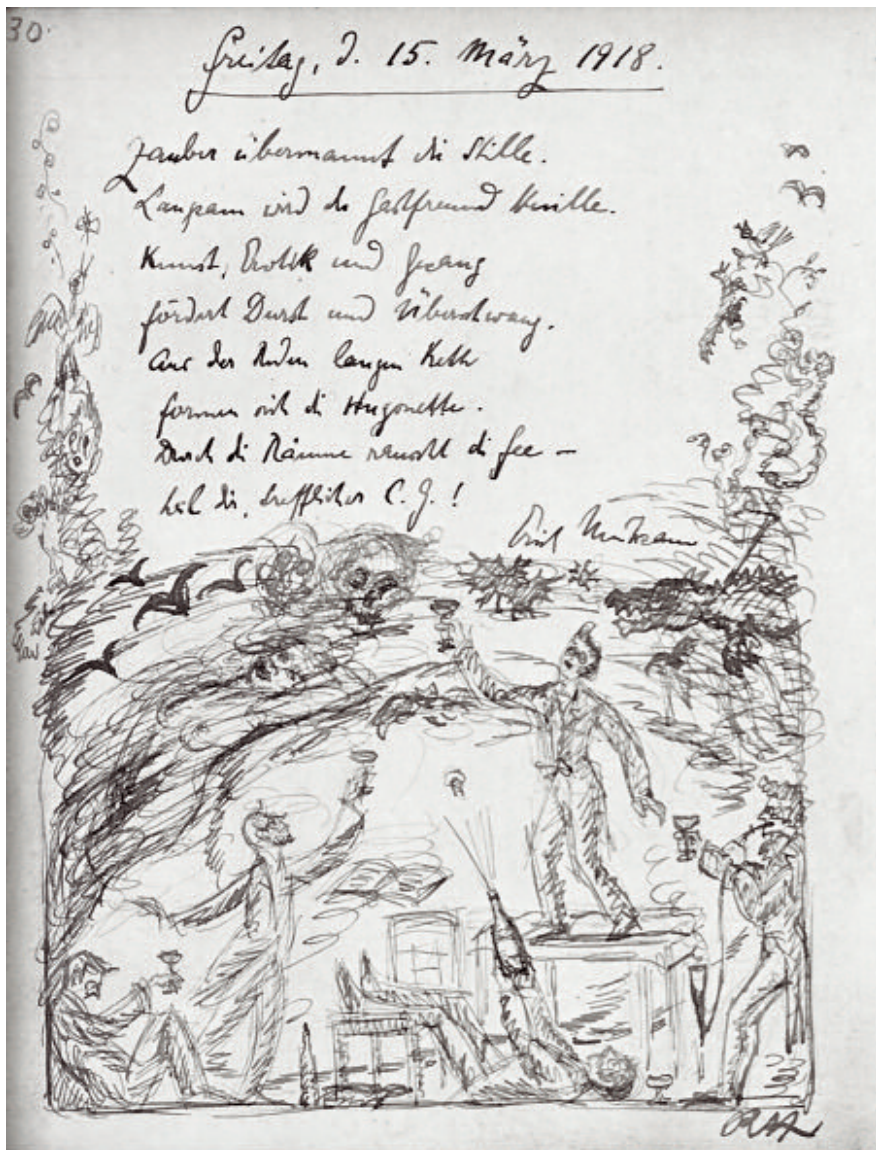 30
Freitag, d. 15. März 1918.
Zauber übermannt die Stille.
Langsam wird der Gastfreund knille.
Kunst, Erotik und Gesang
fördert Durst und Überschwang.
Aus der Reden langen Kette
formen sich die Hugonette.
Durch die Räume rauscht die Fee –
heil dir, trefflicher C. G.!
Erich